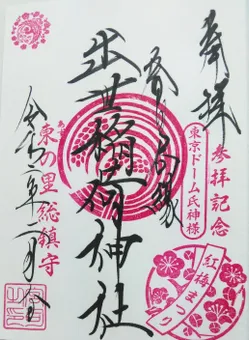 奉拝
参拝記念
春日局縁
東京ドーム氏神様
出世稲荷神社
東の里総鎮守
紅梅まつり